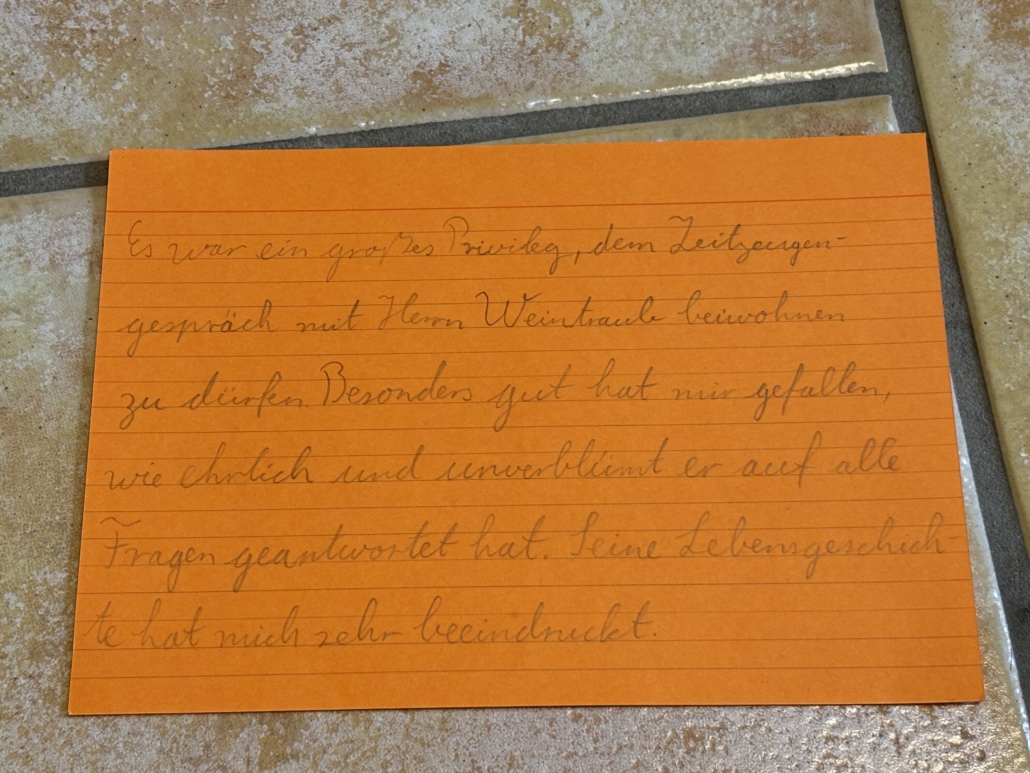 Es war ein großes Privileg, dem Zeitzeugen-
gespräch mit Herrn Weintraub beiwohnen
zu dürfen. Besonders gut hat mir gefallen,
wie ehrlich und unverblümt er auf alle
Fragen geantwortet hat. Seine Lebensgeschich-
te hat mich sehr beeindruckt.